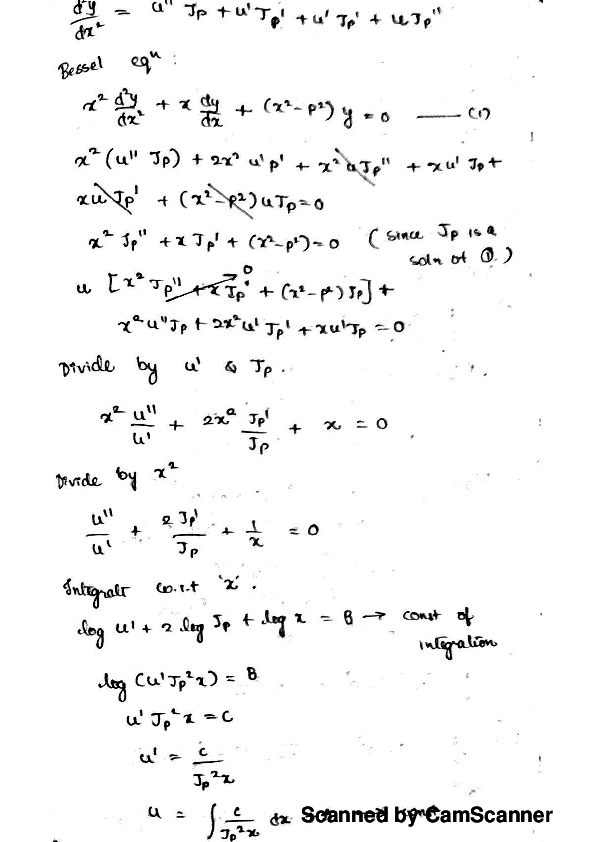 d²y/dx² = u'' Jp + u' Jp' + u' Jp' + u Jp''
Bessel eqⁿ :
x² d²y/dx² + x dy/dx + (x²-p²) y = 0 —— (1)
x² (u'' Jp) + 2x² u' p' + x² u Jp'' + xu' Jp +
xu Jp' + (x²-p²) u Jp = 0
x² Jp'' + x Jp' + (x²-p²) = 0 (since Jp is a
soln of ①.)
u [x² Jp'' + x Jp' + (x²-p²) Jp] + 0
x² u'' Jp + 2x² u' Jp' + xu' Jp = 0
Divide by u' & Jp.
x² u''/u' + 2x² Jp'/Jp + x = 0
Divide by x²
u''/u' + 2 Jp'/Jp + 1/x = 0
Integrate w.r.t 'x'.
log u' + 2 log Jp + log x = B → const of
integration
log (u' Jp² x) = B
u' Jp² x = C
u' = c / Jp² x
u = ∫ c / Jp² x dx
Scanned by CamScanner